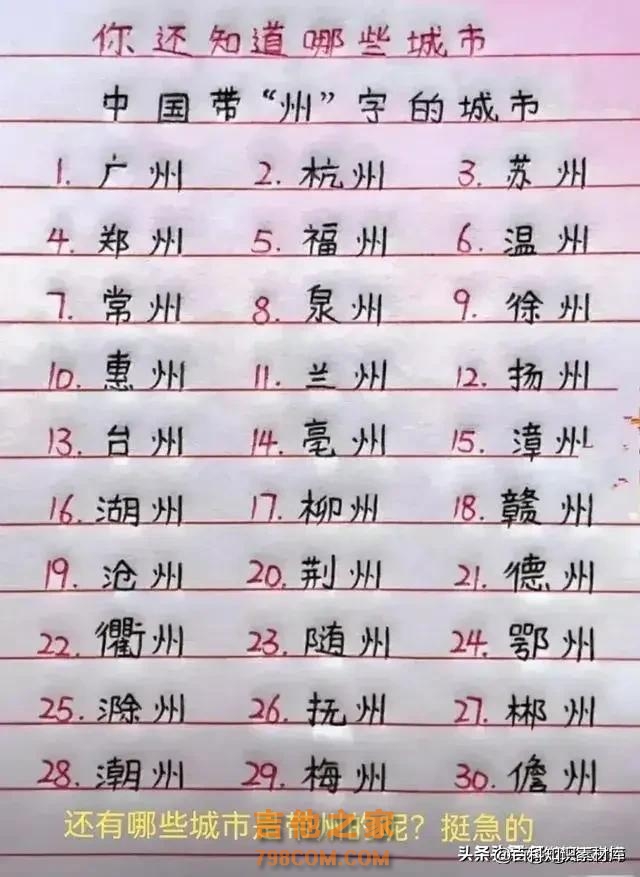 你还知道哪些城市
中国带“州”字的城市
1. 广州 2. 杭州 3. 苏州
4. 郑州 5. 福州 6. 温州
7. 常州 8. 泉州 9. 徐州
10. 惠州 11. 兰州 12. 扬州
13. 台州 14. 毫州 15. 漳州
16. 湖州 17. 柳州 18. 赣州
19. 沧州 20. 荆州 21. 德州
22. 衢州 23. 随州 24. 鄂州
25. 滁州 26. 抚州 27. 郴州
28. 潮州 29. 梅州 30. 儋州
还有哪些城市是带州的呢？挺急的
吉他之家
798COM.COM
头条 @百科知识素材库